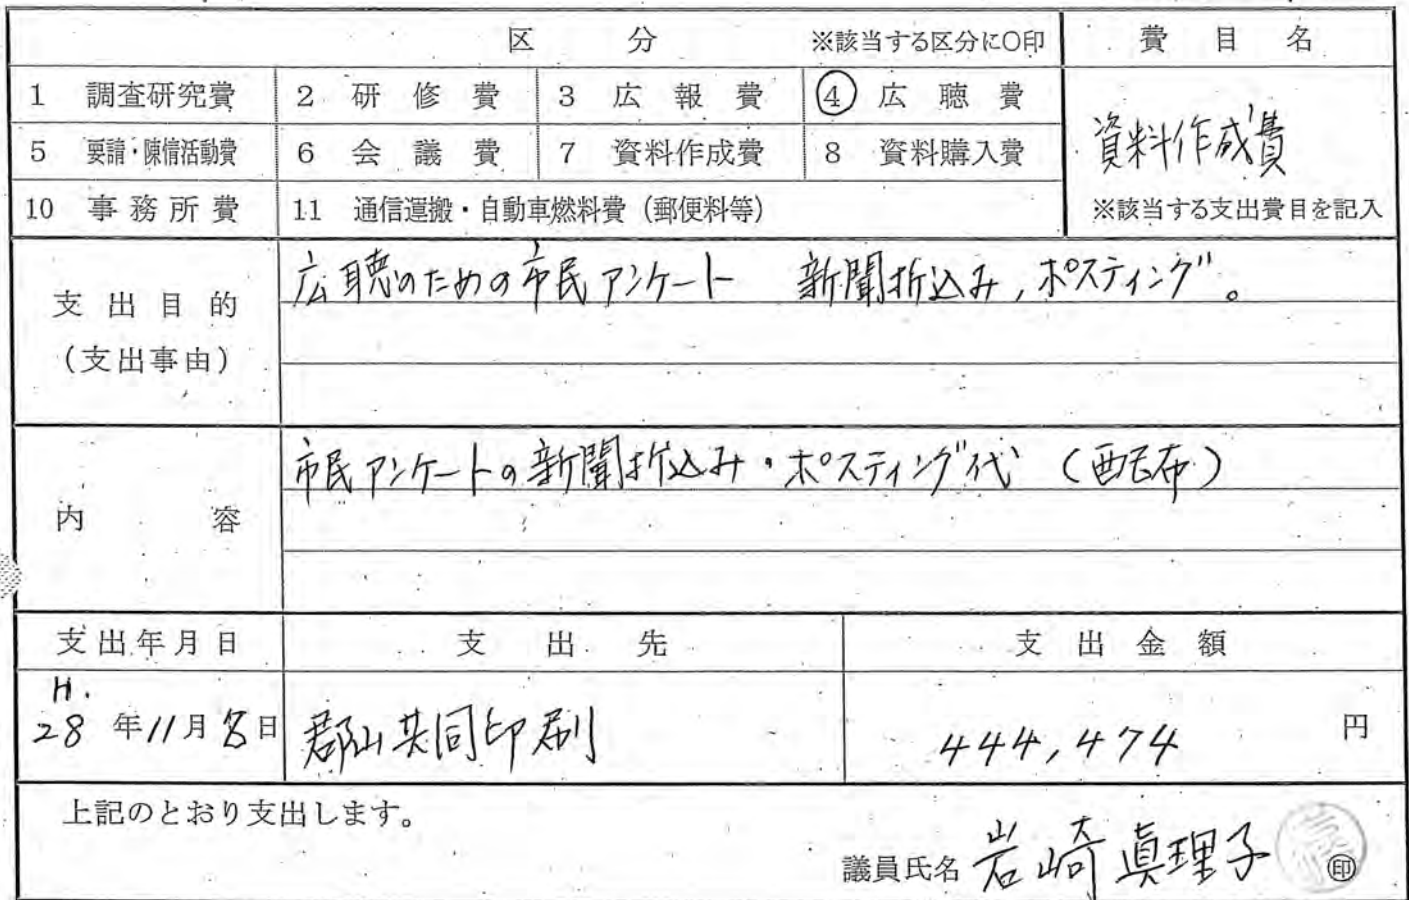 区分 ※該当する区分に○印 費目名
1 調査研究費 2 研修費 3 広報費 ④ 広聴費
資料作成費
5 要請・陳情活動費 6 会議費 7 資料作成費 8 資料購入費
10 事務所費 11 通信運搬・自動車燃料費(郵便料等) ※該当する支出費目を記入
支出目的
(支出事由)
広聴のための市民アンケート 新聞折込み,ポスティング。
内容
市民アンケートの新聞折込み・ポスティング代 (配布)
支出年月日 支出先 支出金額
H.
28年11月8日 郡山共同印刷 444,474 円
上記のとおり支出します。
議員氏名 岩崎真理子 ㊞